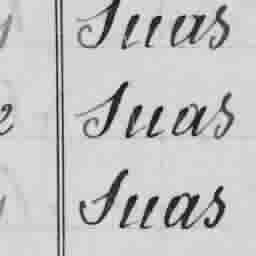 Suas
Suas
Suas